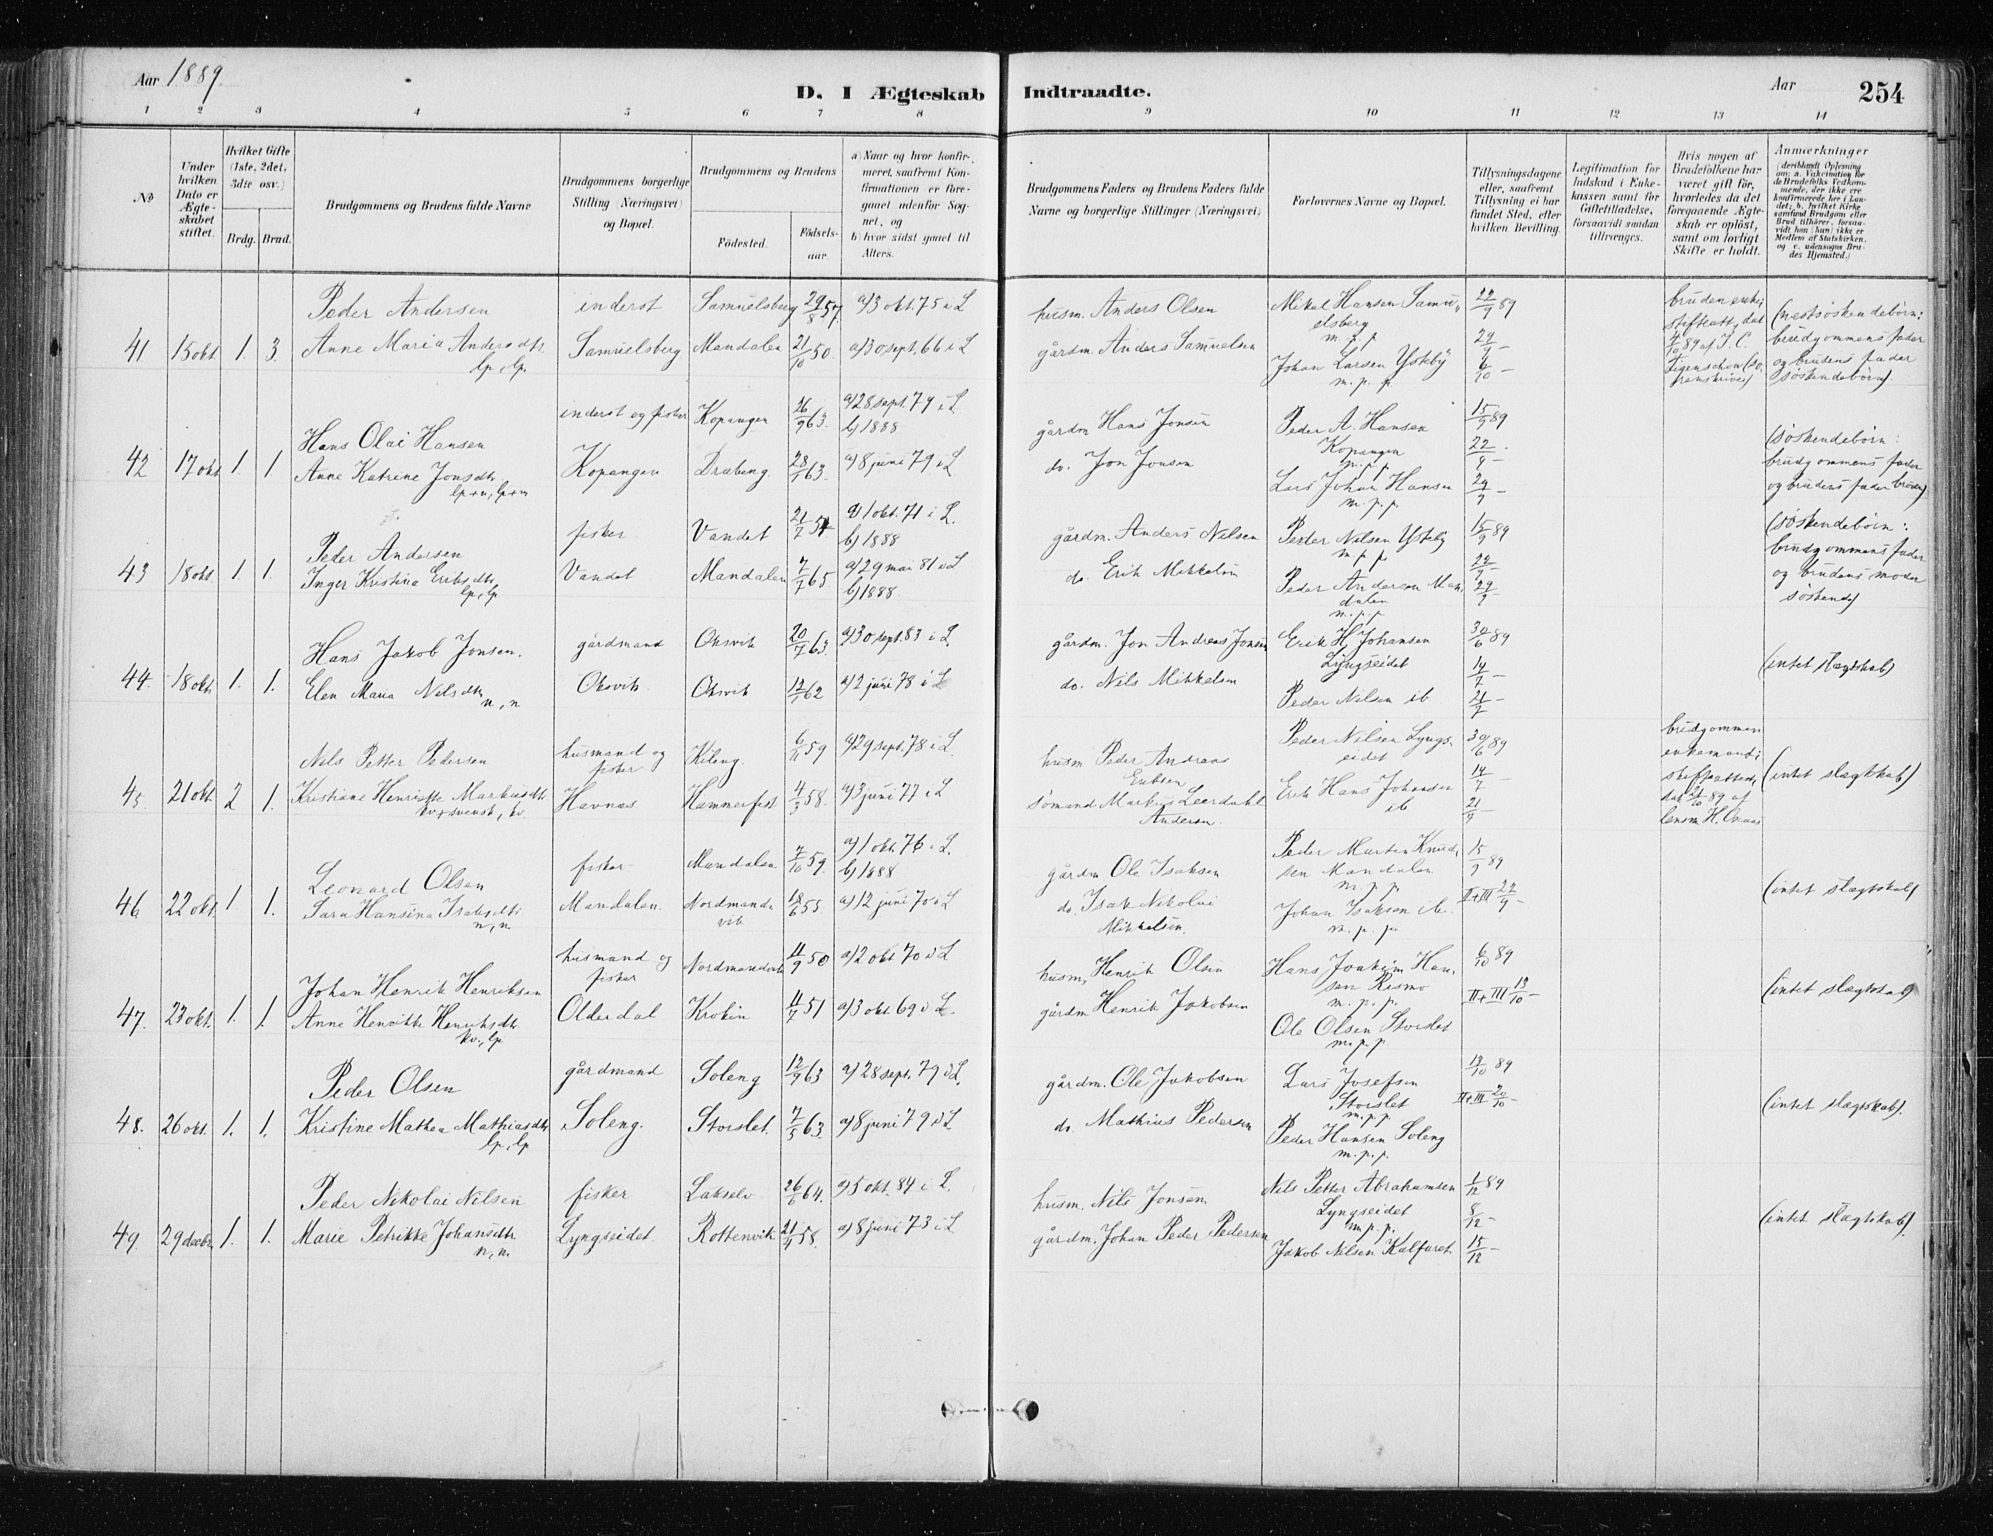 Aar 1889.
D. I Ægteskab Indtraadte.
Aar 254
1 2 3 4 5 6 7 8 9 10 11 12 13 14
No
Under hvilken Dato er Ægteskabet stiftet.
Hvilket Gifte (1ste, 2det, 3die osv.)
Brdg. Brud.
Brudgommens og Brudens fulde Navne
Brudgommens borgerlige Stilling (Næringsvei) og Bopæl.
Brudgommens og Brudens
Fødested.
Fødselsaar.
a) Naar og hvor konfirmeret, saafremt Konfirmationen er foregaaet udenfor Sognet, og
b) hvor sidst gaaet til Alters.
Brudgommens Faders og Brudens Faders fulde Navne og borgerlige Stillinger (Næringsvei)
Forlovernes Navne og Bopæl.
Tillysningsdagene eller, saafremt Tillysning ei har fundet Sted, efter hvilken Bevilling.
Legitimation for Indskud i Enkekassen samt for Giftetilladelse, forsaavidt saadan tiltrænges.
Hvis nogen af Brudefolkene har været gift før, hvorledes da det foregaaende Ægteskab er opløst, samt om lovligt Skifte er holdt.
Anmærkninger
(deriblandt Oplysning om: a. Vakcination for de Brudefolks Vedkommende, der ikke ere konfirmerede her i Landet; b. hvilket Kirkesamfund Brudgom eller Brud tilhører, forsaavidt han (hun) ikke er Medlem af Statskirken, og c. udensogns Brudes Hjemsted.)
41 15 okt 1. 3.
Peder Andersen
Anne Maria Andersdtr
lp, lp.
inderst
Samuelsberg
Samuelsberg 29/8 57. a) 3 okt. 75 i L
Mandalen 21/10 50. a) 30 sept. 66 i L
husm. Anders Olsen
gårdm. Anders Samuelsen
Mikal Hansen Samuelsberg
m. p. p
Johan Larsen Ysteby
m. p. p.
22/9 89
29/9 –
6/10 –
bruden enke;
skifteatt. dat
4/10 89 af
(næstsøskendebørn:
brudgommens fader
og brudens fader
søskendebørn).
42 17 okt 1. 1
Hans Olai Hansen
Anne Katrine Jonsdtr
lp+n, lp+n
inderst og fisker
Kopangen
Kopangen 26/9 63. a) 28 sept. 79 i L
b) 1888
63. a) 8 juni 79 i L
gårdm Hans Jonsen
do. Jon Jonsen
Peder A. Hansen
Kopangen
m. p. p
Lars Johan Hansen
m. p. p.
15/9 89
22/9 –
29/9 –
(søskendebørn:
brudgommens fader
og brudens fader brødre)
43 18 okt. 1. 1.
Peder Andersen
Inger Kristina Eriksdtr
lp, lp
fisker
Vandet
Vandet 21/7 a) 1 okt. 71 i L.
b) 1888
Mandalen 7/7 65 a) 29 mai 81 i L
b) 1888.
gårdm. Anders Nilsen
do. Erik Mikkelsen
Peder Nilsen Ysteby
m. p. p
Peder Andersen Mandalen
m. p. p
15/9 89
22/9 –
29/9
(søskendebørn:
brudgommens fader
og brudens moder
søskende)
44. 18 okt. 1. 1.
Hans Jakob Jonsen.
Elen Maria Nilsdtr
n, n
gårdmand
Oksvik
Oksvik 20/7 63. a) 30 sept. 83 i L.
Oksvik 62 a) 2 juni 78 i L
gårdm. Jon Andreas Jonsen
do. Nils Mikkelsen
Erik H. Johansen
Lyngseidet
Peder Nilsen ib
30/6 89
14/7 –
21/7 –
(intet slægtskab)
45. 21 okt 2 1.
Nils Petter Pedersen
Kristiane Henriette Markusdtr
kv+svensk, kv.
husmand og fisker
Havnnæs
Kileng. 59 a) 29 sept. 78 i L.
Hammerfest 4/3 58. a) 3 juni 77 i L
husm Peder Andreas
Eriksen
sømand Markus Leerdahl
Andersen
Peder Nilsen Lyngseidet
Erik Hans Johansen
ib
30/6 89
14/7 –
21/7
brudgommen
enkemand;
skifteattest
dat 21/10 89 af
lensm H.
(intet slægtskab)
46 22 okt. 1 1.
Leonard Olsen
Sara Hansina Isaksdtr
n, n
fisker
Mandalen.
Mandalen 7/10 59. a) 1 okt. 76 i L.
b) 1888
Nordmandsvik 18/6 55 a) 12 juni 70 i L
gårdm Ole Isaksen
do. Isak Nikolai
Mikkelsen.
Peder Martin Knudsen Mandalen
m. p. p.
Johan Isaksen ib.
m. p. p
15/9 89
II+III 22/9 –
(intet slægtskab)
47. 23 okt. 1. 1.
Johan Henrik Henriksen
Anne Henriette Henriksdtr
kv, lp
husmand og fisker
Olderdal
Nordmandsvik 11/9 50 a) 2 okt 70 i L
Kroken 4/7 51 a) 3 okt. 69 i L.
husm. Henrik Olsen
gårdm Henrik Jakobsen
Hans Joakim Hansen Rismo
m. p. p.
Ole Olsen Storslet
m. p. p.
6/10 89
II+III 13/10 –
(intet slægtskab)
48. 26 okt. 1. 1.
Peder Olsen
Kristine Mathea Mathiasdtr
lp, lp
gårdmand
Soleng.
Soleng 12/9 63 a) 28 sept. 79 i L.
Storslet. 7/5 63. a) 8 juni 79 i L
gårdm. Ole Jakobsen
do. Mathias Pedersen
Lars Josefsen
Storslet
m. p. p
Peder Hansen Soleng
m. p. p.
13/10 89
II+III 20/10 –
(intet slægtskab).
49. 29 decbr. 1. 1.
Peder Nikolai Nilsen
Marie Petrikke Johansdtr
n, n
fisker
Lyngseidet
Lakselv 26/6 64. a) 5 okt. 84 i L.
Rottenvik 58. a) 8 juni 73 i L
husm. Nils Jonsen
gårdm. Johan Peder Pedersen
Nils Petter Abrahamsen
Lyngseidet
m. p. p.
Jakob Nilsen Kalfaret.
1/12 89
8/12 –
15/12 –
(intet slægtskab).